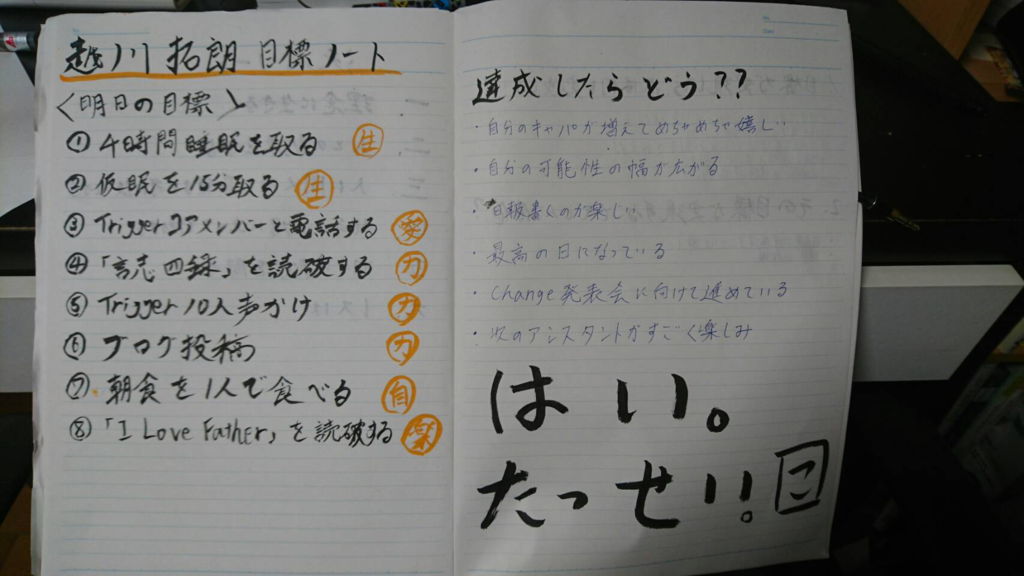 越川 拓朗 目標ノート
〈明日の目標〉
① 4時間睡眠を取る 生
② 仮眠を15分取る 生
③ Triggerコアメンバーと電話する 愛
④ 「言志四録」を読破する 力
⑤ Trigger 10人声かけ 力
⑥ ブログ投稿 力
⑦ 朝食を1人で食べる 自
⑧ 「I Love Father」を読破する 楽
達成したらどう??
・自分のキャパが増えてめちゃめちゃ嬉しい
・自分の可能性の幅が広がる
・日報書くのが楽しい
・最高の日になっている
・Change発表会に向けて進めている
・次のアシスタントがすごく楽しみ
はい。
たっせい!こ